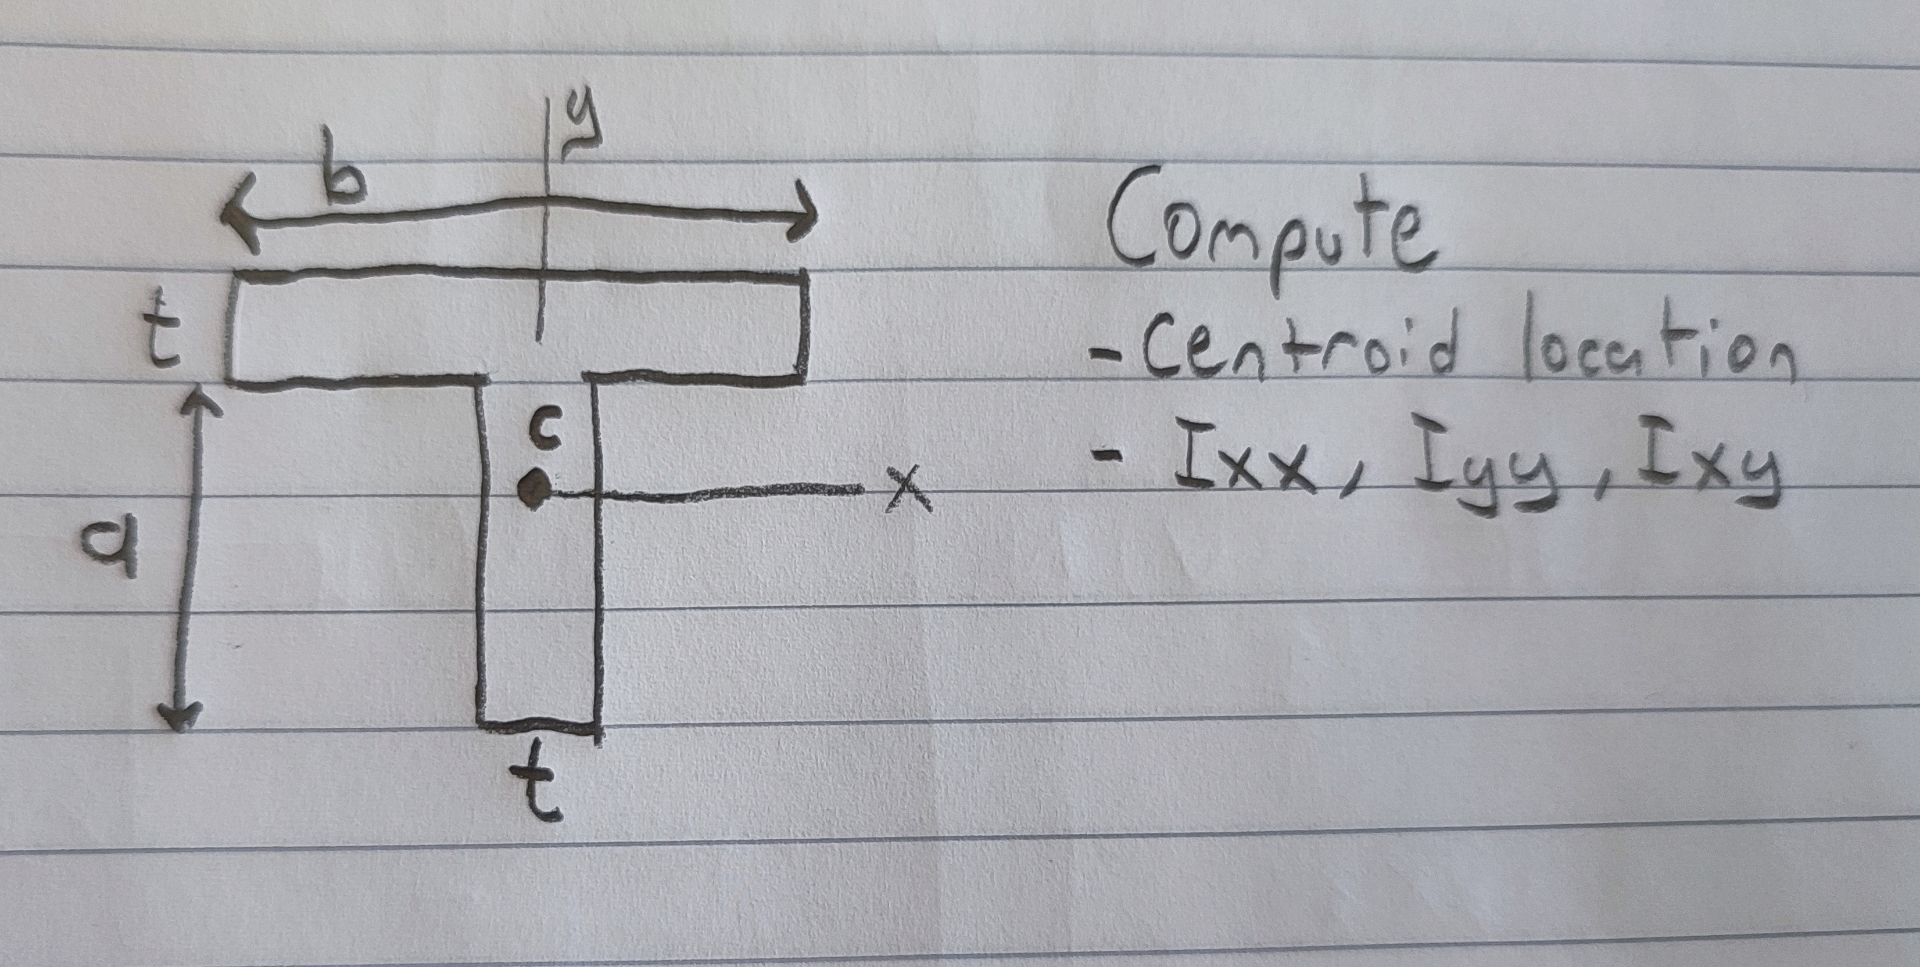 y
b
Compute
t
- Centroid location
c
- Ixx, Iyy, Ixy
x
a
t